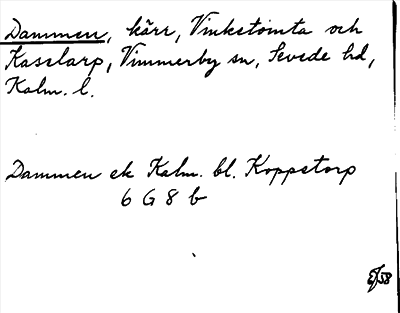 Dammen, kärr, Vinketomta och
Kasslarp, Vimmerby sn, Sevede hd,
Kalm. l.
Dammen ek Kalm. bl. Koppetorp
6 G 8 b